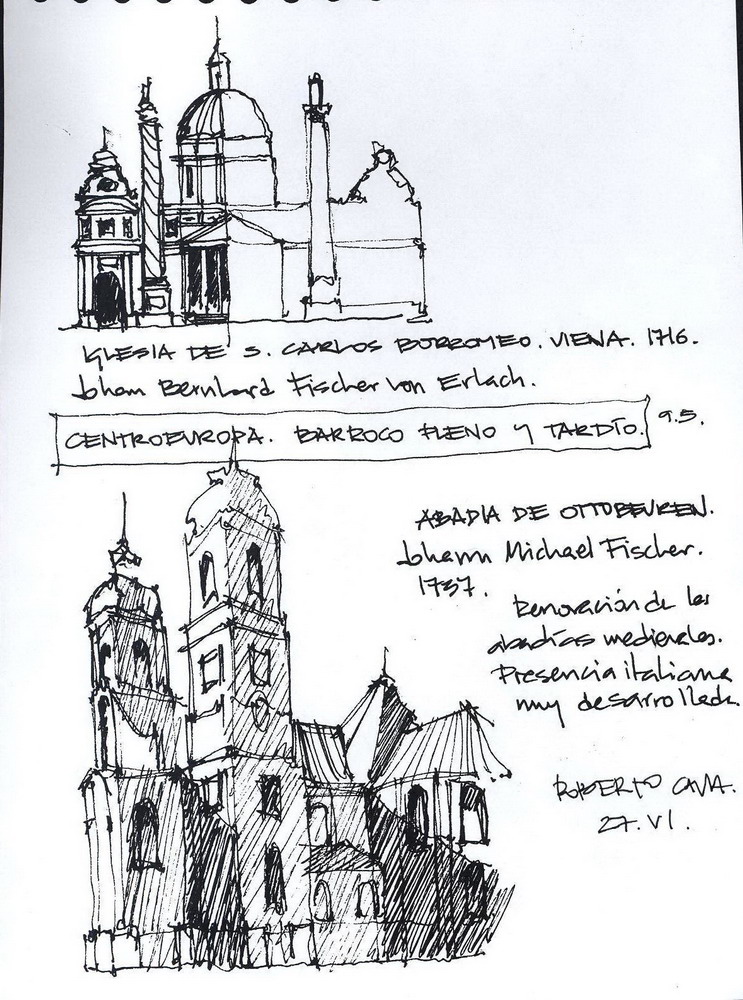 IGLESIA DE S. CARLOS BORROMEO. VIENA. 1716.
Joham Bernhard Fischer von Erlach.
CENTROEUROPA. BARROCO PLENO Y TARDÍO. 9.5.
ABADIA DE OTTOBEUREN.
Johann Michael Fischer.
1737.
Renovación de las
abadías medievales.
Presencia italiana
muy desarrollada.
ROBERTO
27.VI.